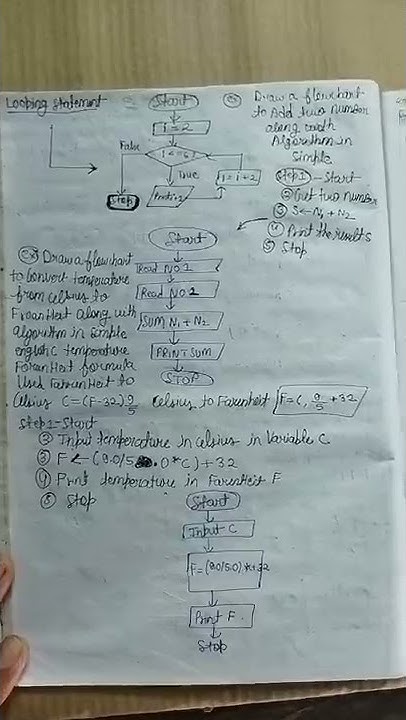 Looping Statement
Start
i = 2
False
i <= 6
True
Stop
Print i
i = i + 2
Draw a flowchart
to Add two number
along with
Algorithm in
Simple
Step 1 - Start
② Get two number
③ S ← N1 + N2
④ Print the results
⑤ Stop
Start
Read NO.1
Read NO.2
SUM N1 + N2
PRINT SUM
STOP
Draw a flowchart
to Convert temperature
from Celsius to
FranHeit along with
algorithm in simple
english C temperature
FaranHeit formula
Used FaranHeit to
Celsius C=(F-32) 9/5 Celsius to Farenheit F = C, 9/5 + 32
Step 1 - Start
② Input temperature in Celsius in Variable C
③ F ← (9.0/5.0*C) + 32
④ Print temperature in Farenheit F
⑤ Stop
Start
Input C
F=(9.0/5.0)*C+32
Print F.
Stop